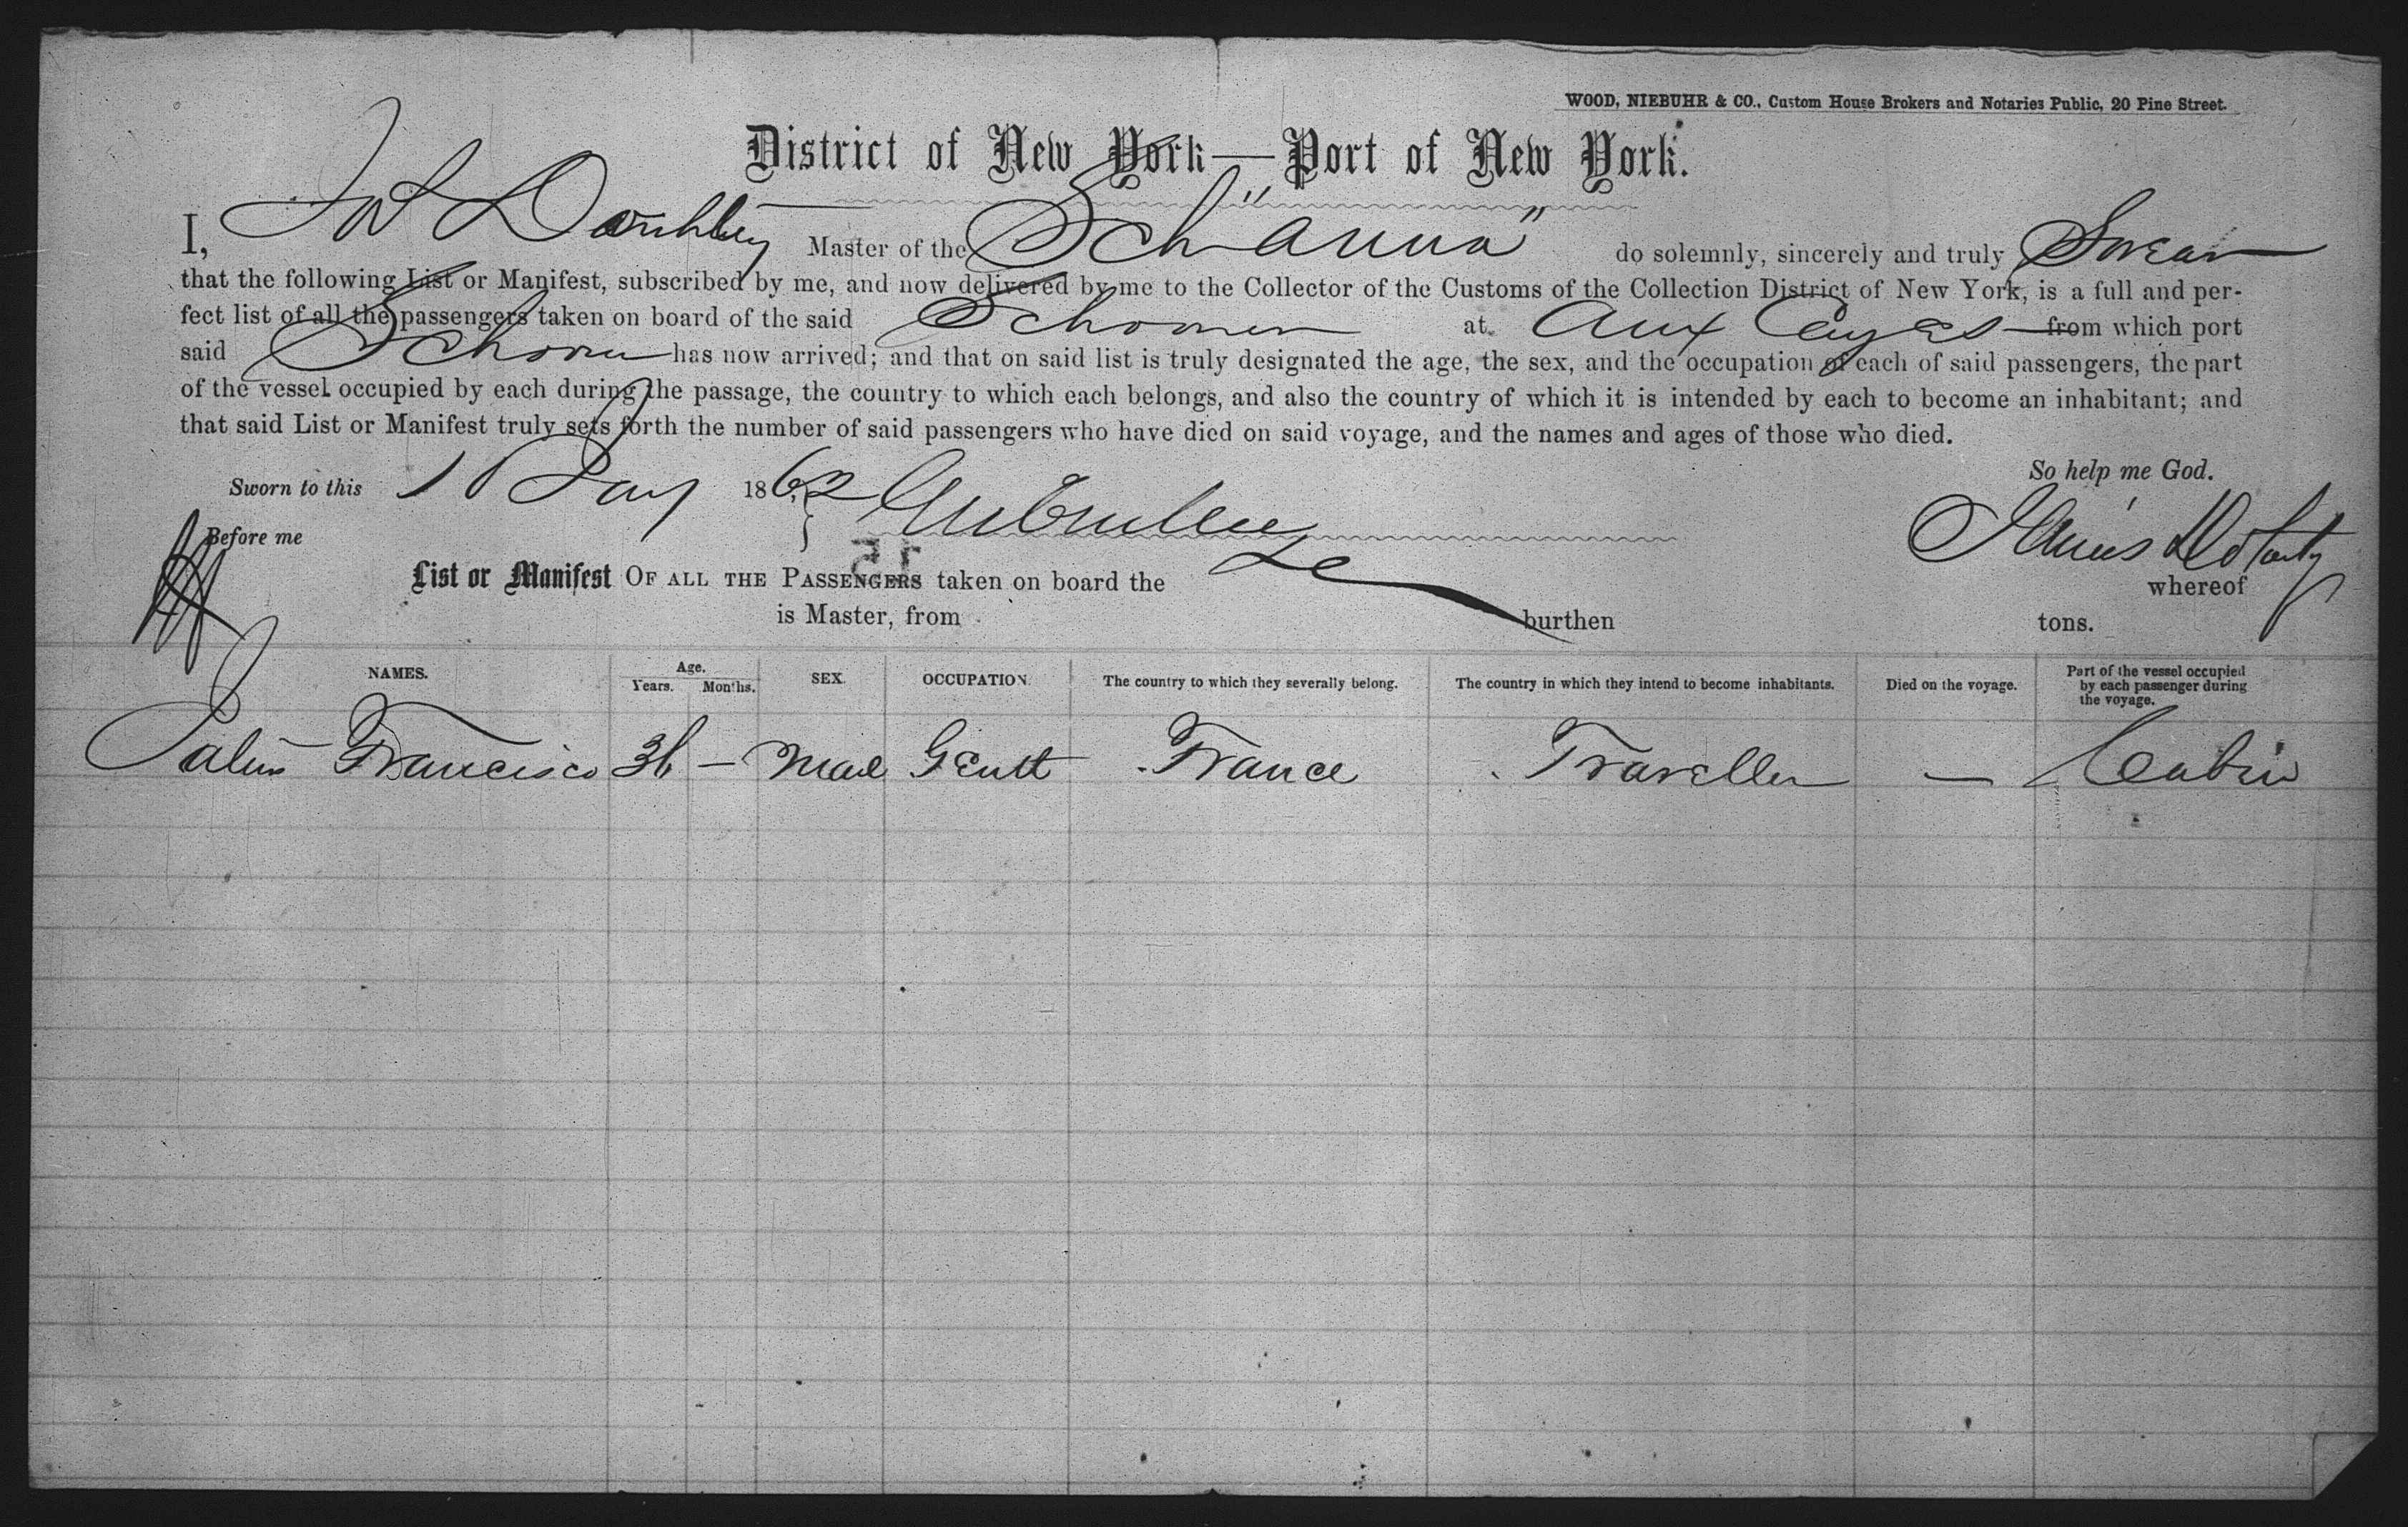 WOOD, NIEBUHR & CO., Custom House Brokers and Notaries Public, 20 Pine Street.
District of New York—Port of New York.
I, Master of the Sch "Anna" do solemnly, sincerely and truly Swear
that the following List or Manifest, subscribed by me, and now delivered by me to the Collector of the Customs of the Collection District of New York, is a full and per-
fect list of all the passengers taken on board of the said Schooner at Aux Cayes from which port
said Schooner has now arrived; and that on said list is truly designated the age, the sex, and the occupation of each of said passengers, the part
of the vessel occupied by each during the passage, the country to which each belongs, and also the country of which it is intended by each to become an inhabitant; and
that said List or Manifest truly sets forth the number of said passengers who have died on said voyage, and the names and ages of those who died.
So help me God.
Sworn to this 1862
Before me
List or Manifest OF ALL THE PASSENGERS taken on board the whereof
is Master, from burthen tons.
NAMES. Age. Years. Months. SEX. OCCUPATION. The country to which they severally belong. The country in which they intend to become inhabitants. Died on the voyage. Part of the vessel occupied by each passenger during the voyage.
Francisco 36 — Male Gentt France Traveller — Cabin